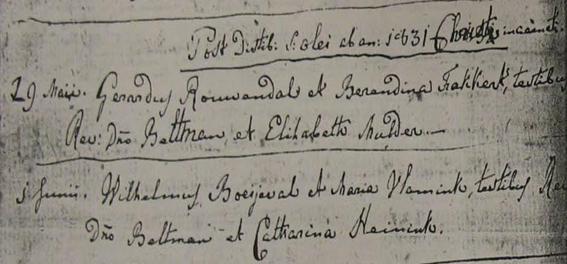 Post Distrib: S: olei ab an: 1831
29 Maii. Gerardus Rouwendal et Berandina Fakkert, testibus
Rev: Dno Beltman, et Elisabeth Mulder.
1 Junii. Wilhelmus Boeijeval et Maria Wamink, testibus Rev
Dno Beltman et Catharina Heinink.